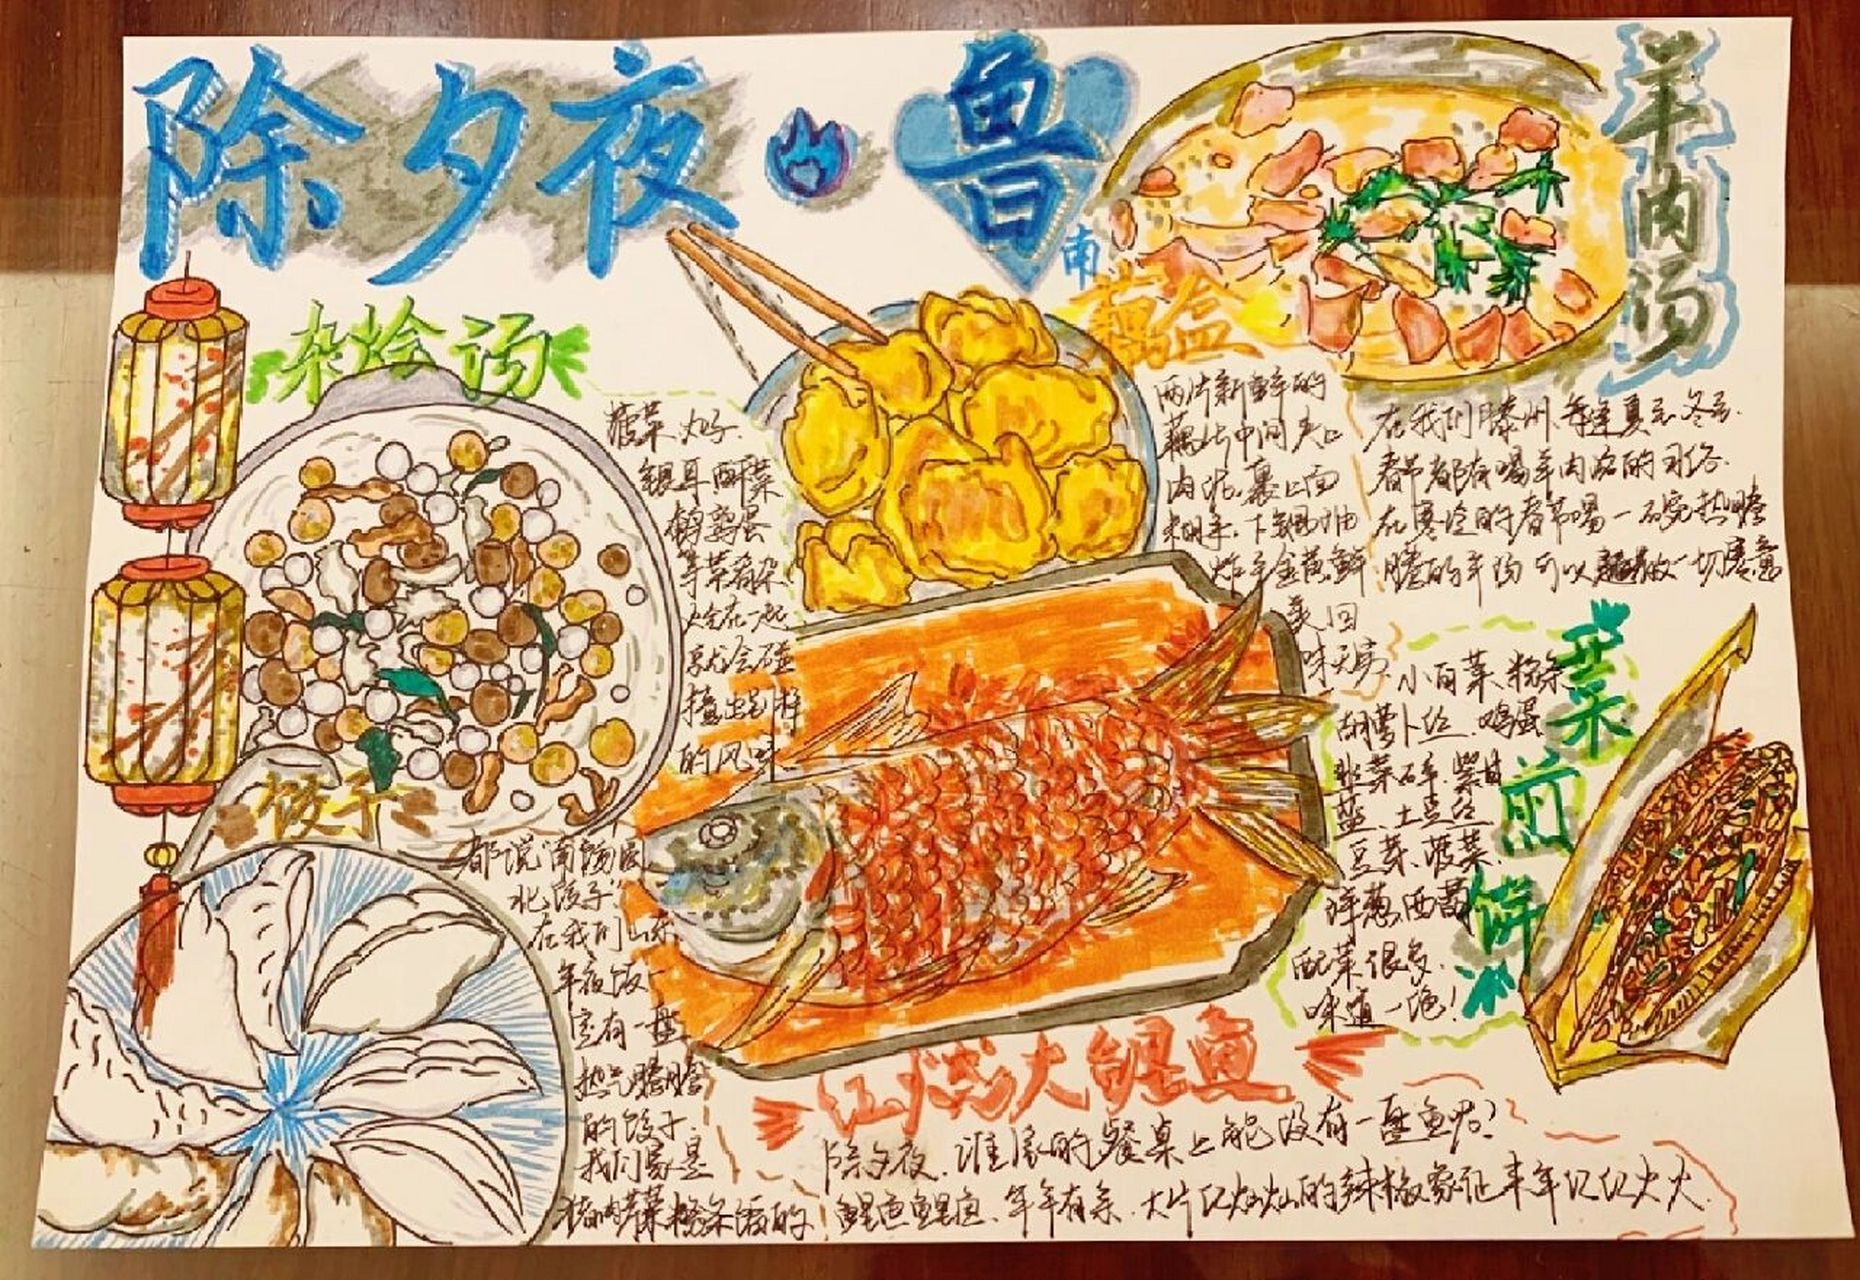 除夕夜·鲁
南
羊肉汤
藕盒
杂烩汤
菠菜丸子
银耳酥菜
鹌鹑蛋
等菜肴杂
烩在一起
就会碰
撞出别样
的风味
两片新鲜的
藕片中间夹上
肉泥,裹上面
糊糸,下锅油
炸至金黄,鲜
美回
味无穷
在我们滕州,每逢夏至冬至
春节都有喝羊肉汤的习俗.
在寒冷的春节喝一碗热腾
腾的羊汤可以融化一切寒意
菜煎饼
小白菜、粉条
胡萝卜丝、鸡蛋
韭菜碎、紫甘
蓝、土豆丝
豆芽、菠菜、
洋葱、西葫
配菜很多,
味道一绝!
饺子
都说"南汤圆
北饺子"
在我们山东,
年夜饭一
定有一盘
热气腾腾
的饺子.
我们家是
猪肉芹菜粉条馅的
红烧大鲤鱼
除夕夜,谁家的餐桌上能没有一盘鱼呢?
鲤鱼鲤鱼,年年有余.大片红灿灿的辣椒象征来年红红火火.